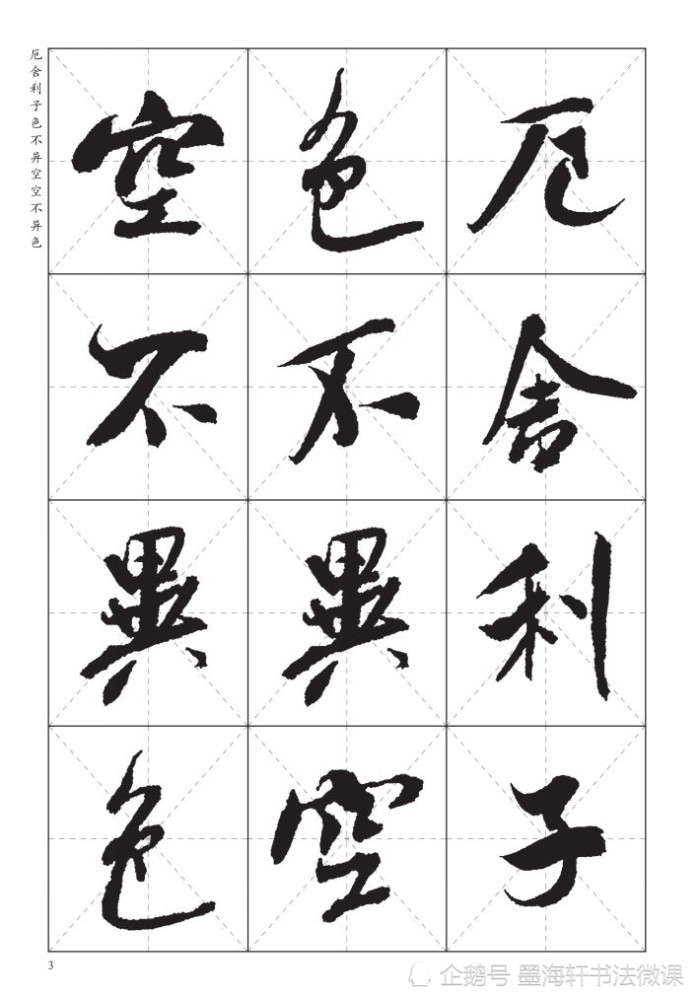 厄舍利子色不异空空不异色
厄舍利子
色不異空
空不異色
3
企鹅号 墨海轩书法微课